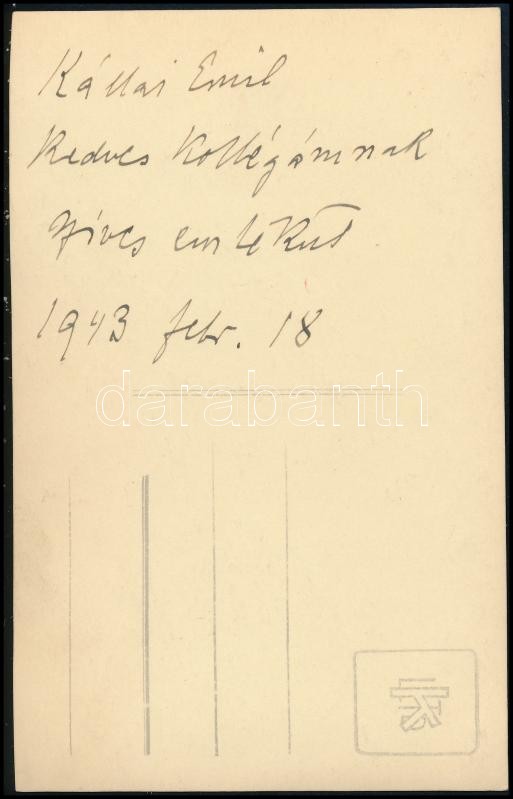 Kállai Emil
Kedves Kollégámnak
szíves emlékül
1943 febr. 18
darabanth